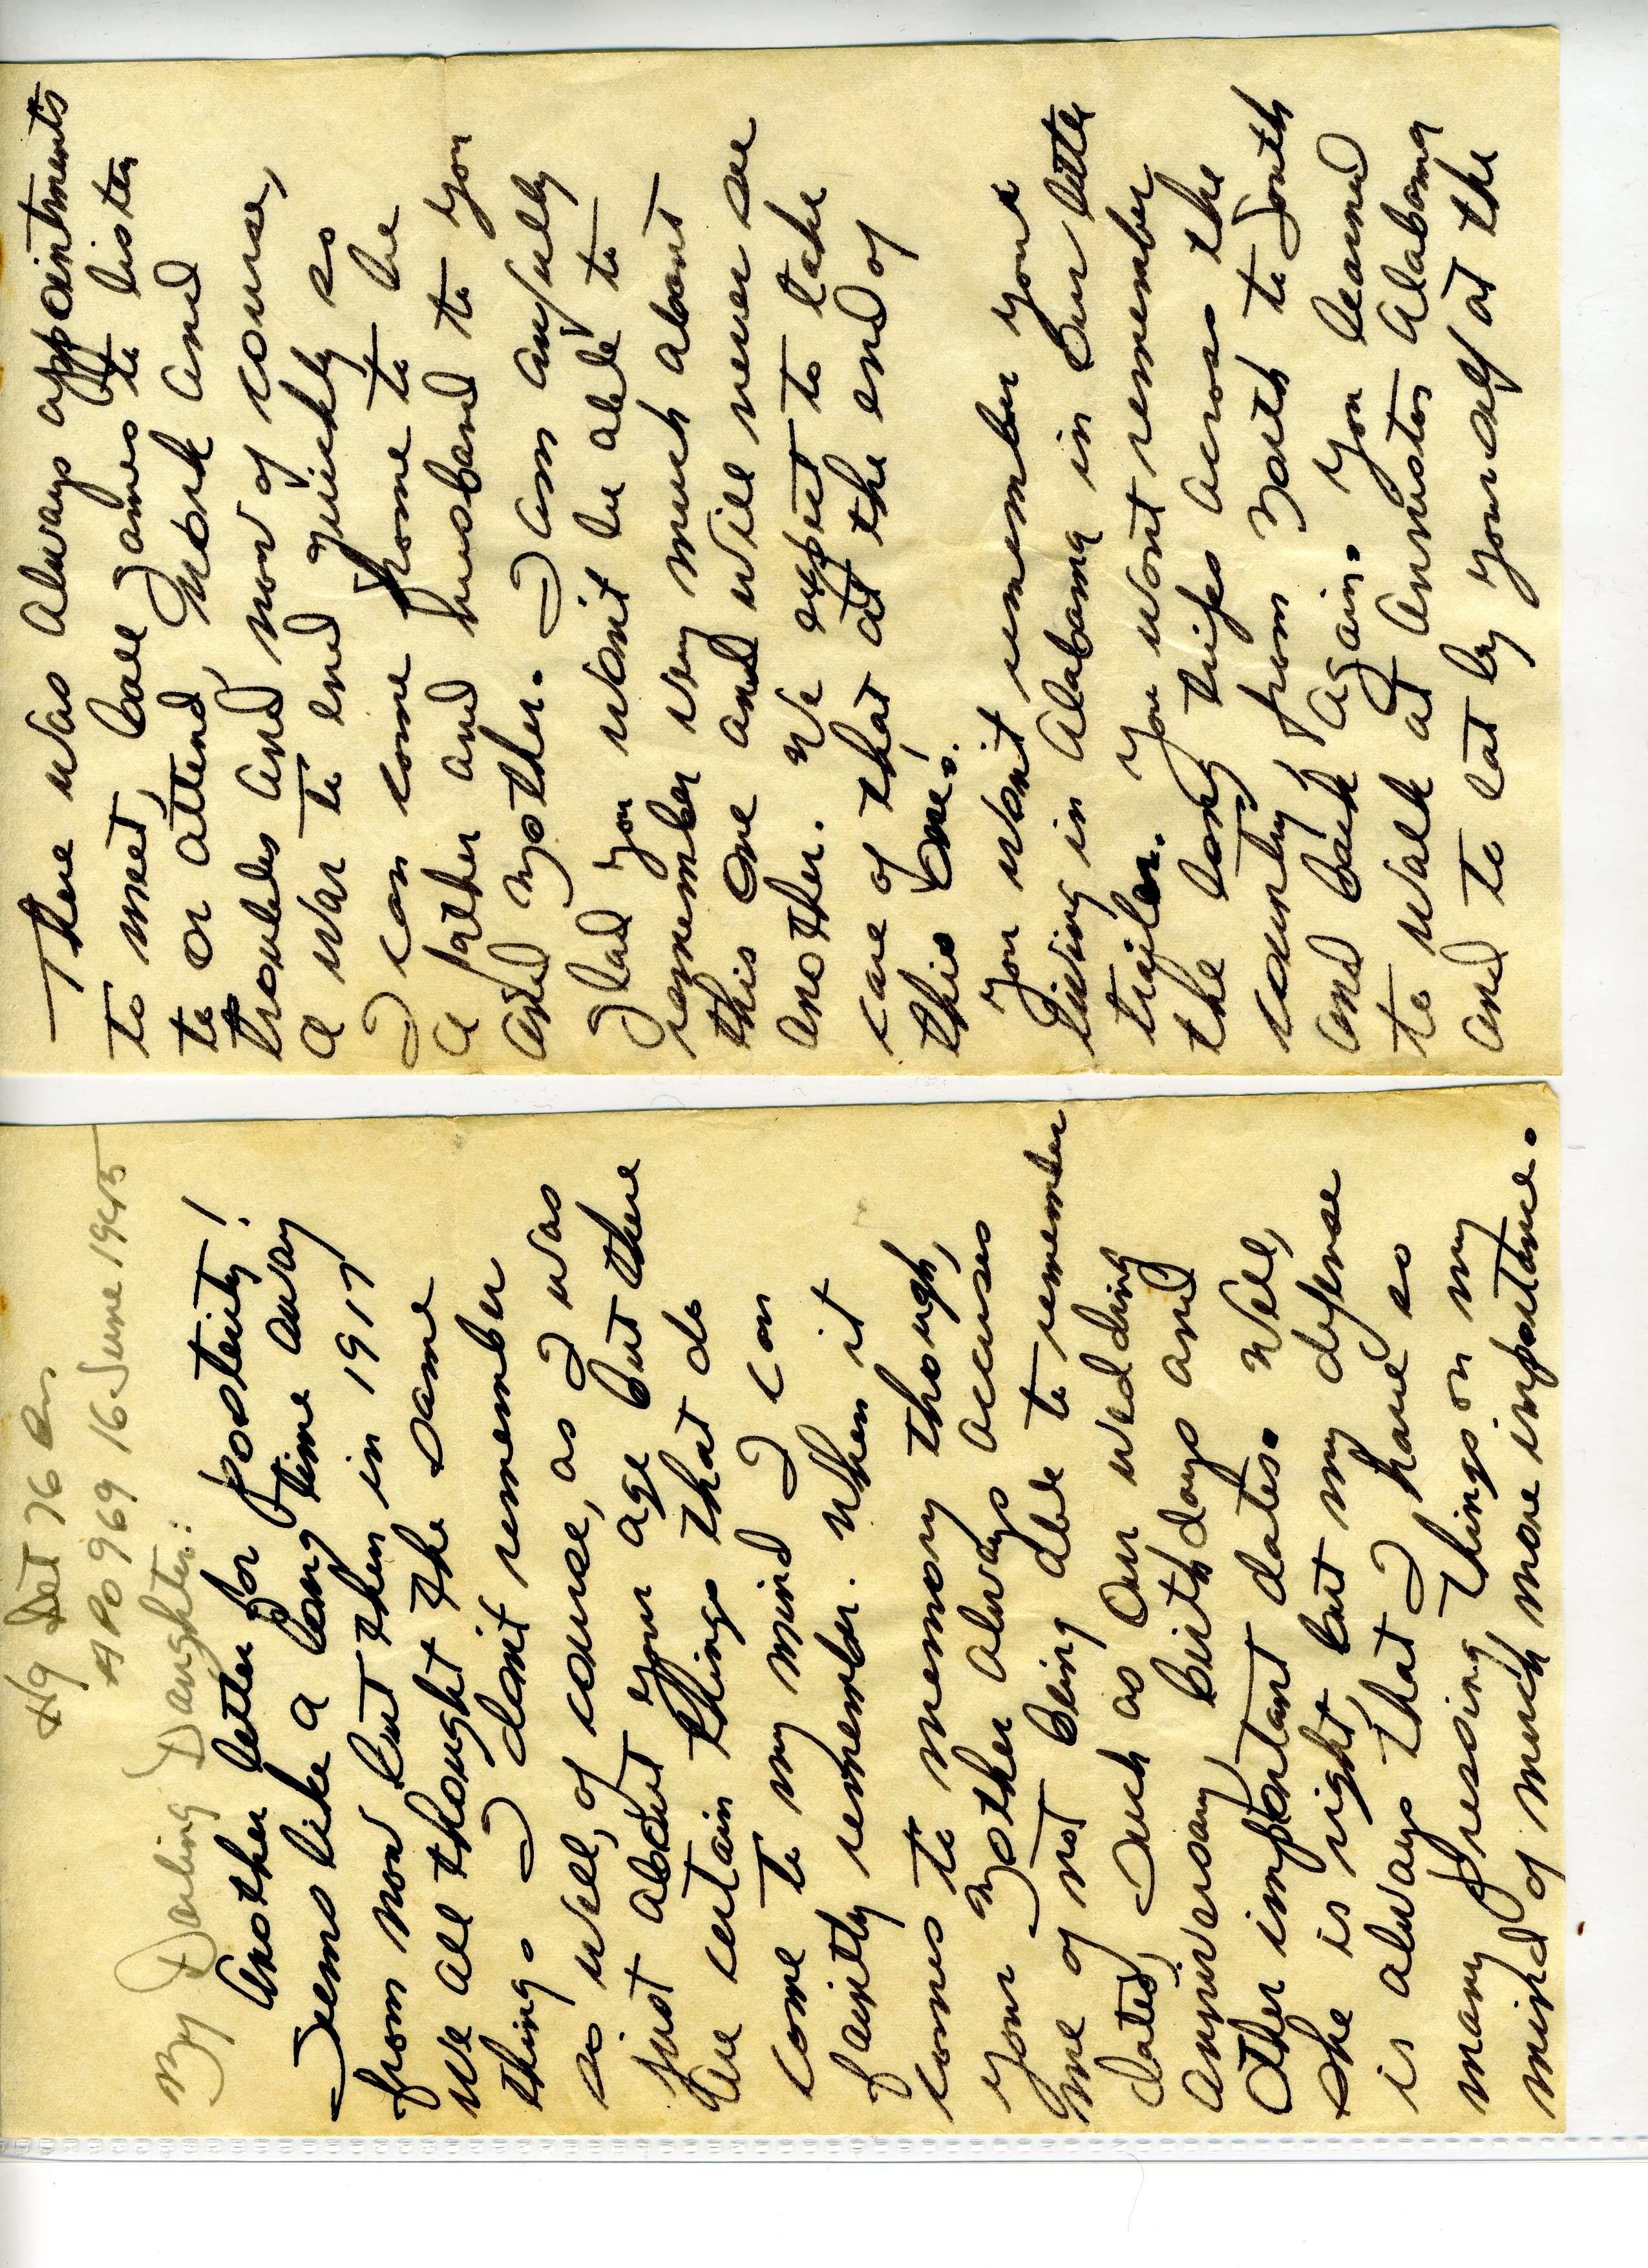 Hq Det 76 Bn
APO 969 16 June 1945
My Darling Daughter:
Another letter for posterity!
Seems like a long time away
from now but then in 1917
we all thought the same
thing. I don't remember
so well, of course, as I was
just about your age but there
are certain things that do
come to my mind I can
faintly remember. When it
comes to memory though,
your Mother always accuses
me of not being able to remember
dates, such as our wedding
anniversary, birthdays and
other important dates. Well,
she is right, but my defense
is always that I have so
many pressing things on my
mind of much more importance.
There was always appointments
to meet, ball games to listen
to or attend, work and
troubles and now of course,
a war to end quickly so
I can come home to be
a father and husband to you
and Mother. I am awfully
glad you won't be able to
remember very much about
this one and will never see
another. We expect to take
care of that at the end of
this one.
You won't remember your
living in Alabama in our little
trailer. You wont remember
the long trips across the
country, from North to South
and back again. You learned
to walk at Anniston Alabama
and to eat by yourself at the